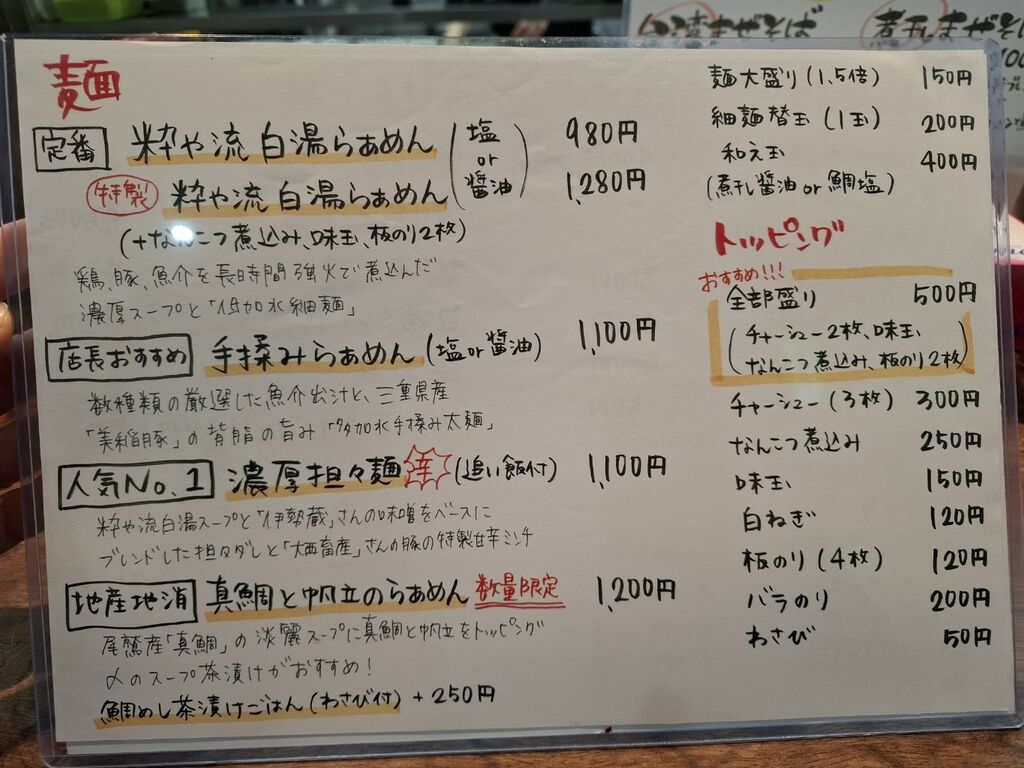 麺
定番 粋や流 白湯らぁめん (塩 or 醤油) 980円
特製 粋や流 白湯らぁめん 1,280円
(+なんこつ煮込み、味玉、板のり2枚)
鶏、豚、魚介を長時間強火で煮込んだ
濃厚スープと「低加水細麺」
店長おすすめ 手揉みらぁめん (塩or醤油) 1,100円
数種類の厳選した魚介出汁と、三重県産
「美稲豚」の背脂の旨み「多加水手揉み太麺」
人気No.1 濃厚担々麺 辛 (追い飯付) 1,100円
粋や流白湯スープと「伊勢蔵」さんの味噌をベースに
ブレンドした担々ダレと「大西畜産」さんの豚の特製甘辛ミンチ
地産地消 真鯛と帆立のらぁめん 数量限定 1,200円
尾鷲産「真鯛」の淡麗スープに真鯛と帆立をトッピング
〆のスープ茶漬けがおすすめ!
鯛めし茶漬けごはん(わさび付) + 250円
麺大盛り(1.5倍) 150円
細麺替玉(1玉) 200円
和え玉 400円
(煮干し醤油or鯛塩)
トッピング
おすすめ!!!
全部盛り 500円
(チャーシュー2枚、味玉、
なんこつ煮込み、板のり2枚)
チャーシュー(3枚) 300円
なんこつ煮込み 250円
味玉 150円
白ねぎ 120円
板のり(4枚) 120円
バラのり 200円
わさび 50円
台湾まぜそば
煮干しまぜそば